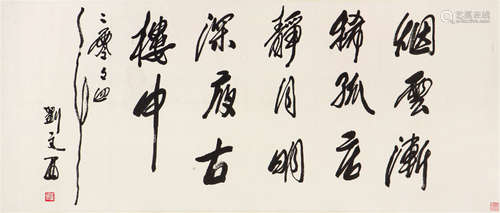 烟雲漸
稀孤店
靜月明
深夜古
樓中
二零〻四年
劉文西